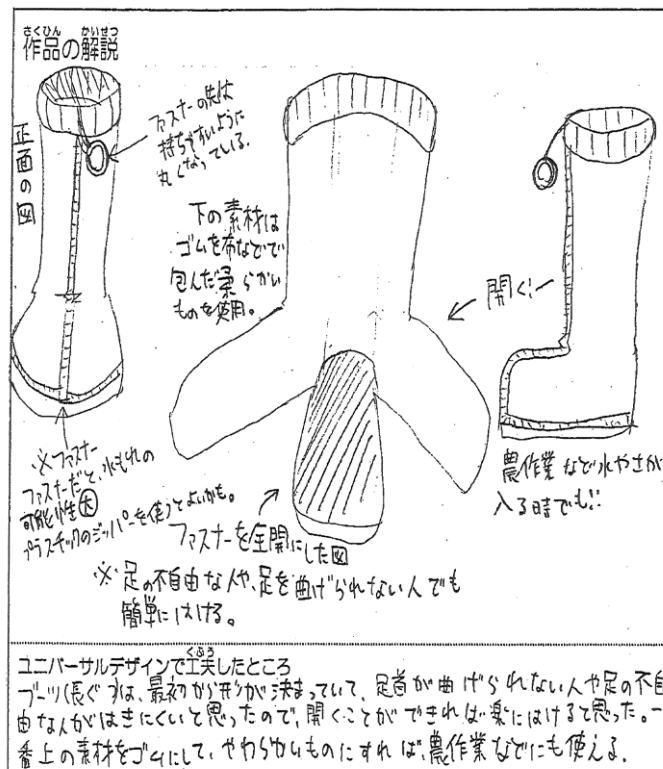 作品の解説
さくひん かいせつ
正面の図
ファスナーの先は
持ちやすいように
丸くなっている.
下の素材は
ゴムを布などで
包んだ柔らかい
ものを使用。
開く!
※ファスナー
ファスナーだと、水もれの
可能性大
プラスチックのジッパーを使うとよいかも。
ファスナーを全開にした図
農作業など水やさが
入る時でも!!
※足の不自由な人や、足を曲げられない人でも
簡単にはける。
くふう
ユニバーサルデザインで工夫したところ
ブーツ(長ぐつ)は、最初から形が決まっていて、足首が曲げられない人や足の不自
由な人がはきにくいと思ったので、開くことができれば楽にはけると思った。一
番上の素材をゴムにして、やわらかいものにすれば、農作業などにも使える.